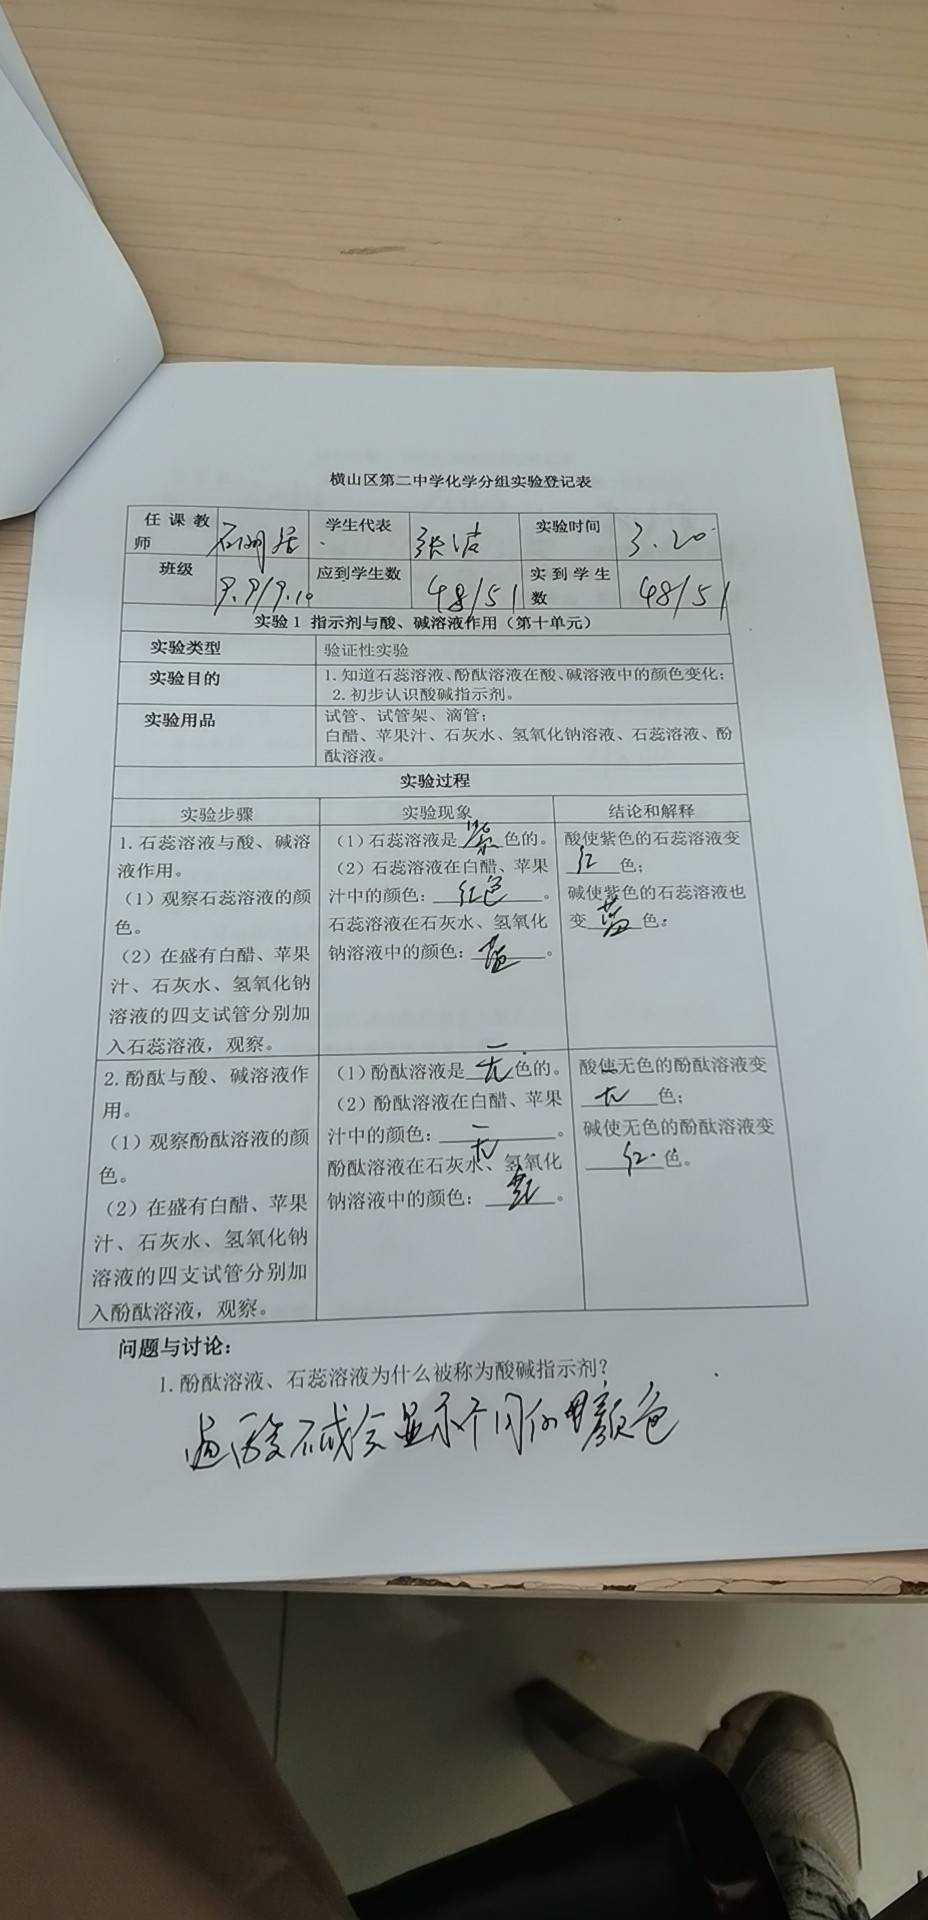 横山区第二中学化学分组实验登记表
任课教师 学生代表 张洁 实验时间 3.20
班级 9.9/9.10 应到学生数 48/51 实到学生数 48/51
实验1 指示剂与酸、碱溶液作用（第十单元）
实验类型 验证性实验
实验目的 1.知道石蕊溶液、酚酞溶液在酸、碱溶液中的颜色变化；
2.初步认识酸碱指示剂。
实验用品 试管、试管架、滴管；
白醋、苹果汁、石灰水、氢氧化钠溶液、石蕊溶液、酚
酞溶液。
实验过程
实验步骤 实验现象 结论和解释
1.石蕊溶液与酸、碱溶
液作用。
（1）观察石蕊溶液的颜
色。
（2）在盛有白醋、苹果
汁、石灰水、氢氧化钠
溶液的四支试管分别加
入石蕊溶液，观察。
（1）石蕊溶液是紫色的。
（2）石蕊溶液在白醋、苹果
汁中的颜色：红色。
石蕊溶液在石灰水、氢氧化
钠溶液中的颜色：蓝。
酸使紫色的石蕊溶液变
红色；
碱使紫色的石蕊溶液也
变蓝色。
2.酚酞与酸、碱溶液作
用。
（1）观察酚酞溶液的颜
色。
（2）在盛有白醋、苹果
汁、石灰水、氢氧化钠
溶液的四支试管分别加
入酚酞溶液，观察。
（1）酚酞溶液是无色的。
（2）酚酞溶液在白醋、苹果
汁中的颜色：无。
酚酞溶液在石灰水、氢氧化
钠溶液中的颜色：红。
酸使无色的酚酞溶液变
无色；
碱使无色的酚酞溶液变
红色。
问题与讨论：
1.酚酞溶液、石蕊溶液为什么被称为酸碱指示剂？
遇酸碱会显示不同的颜色